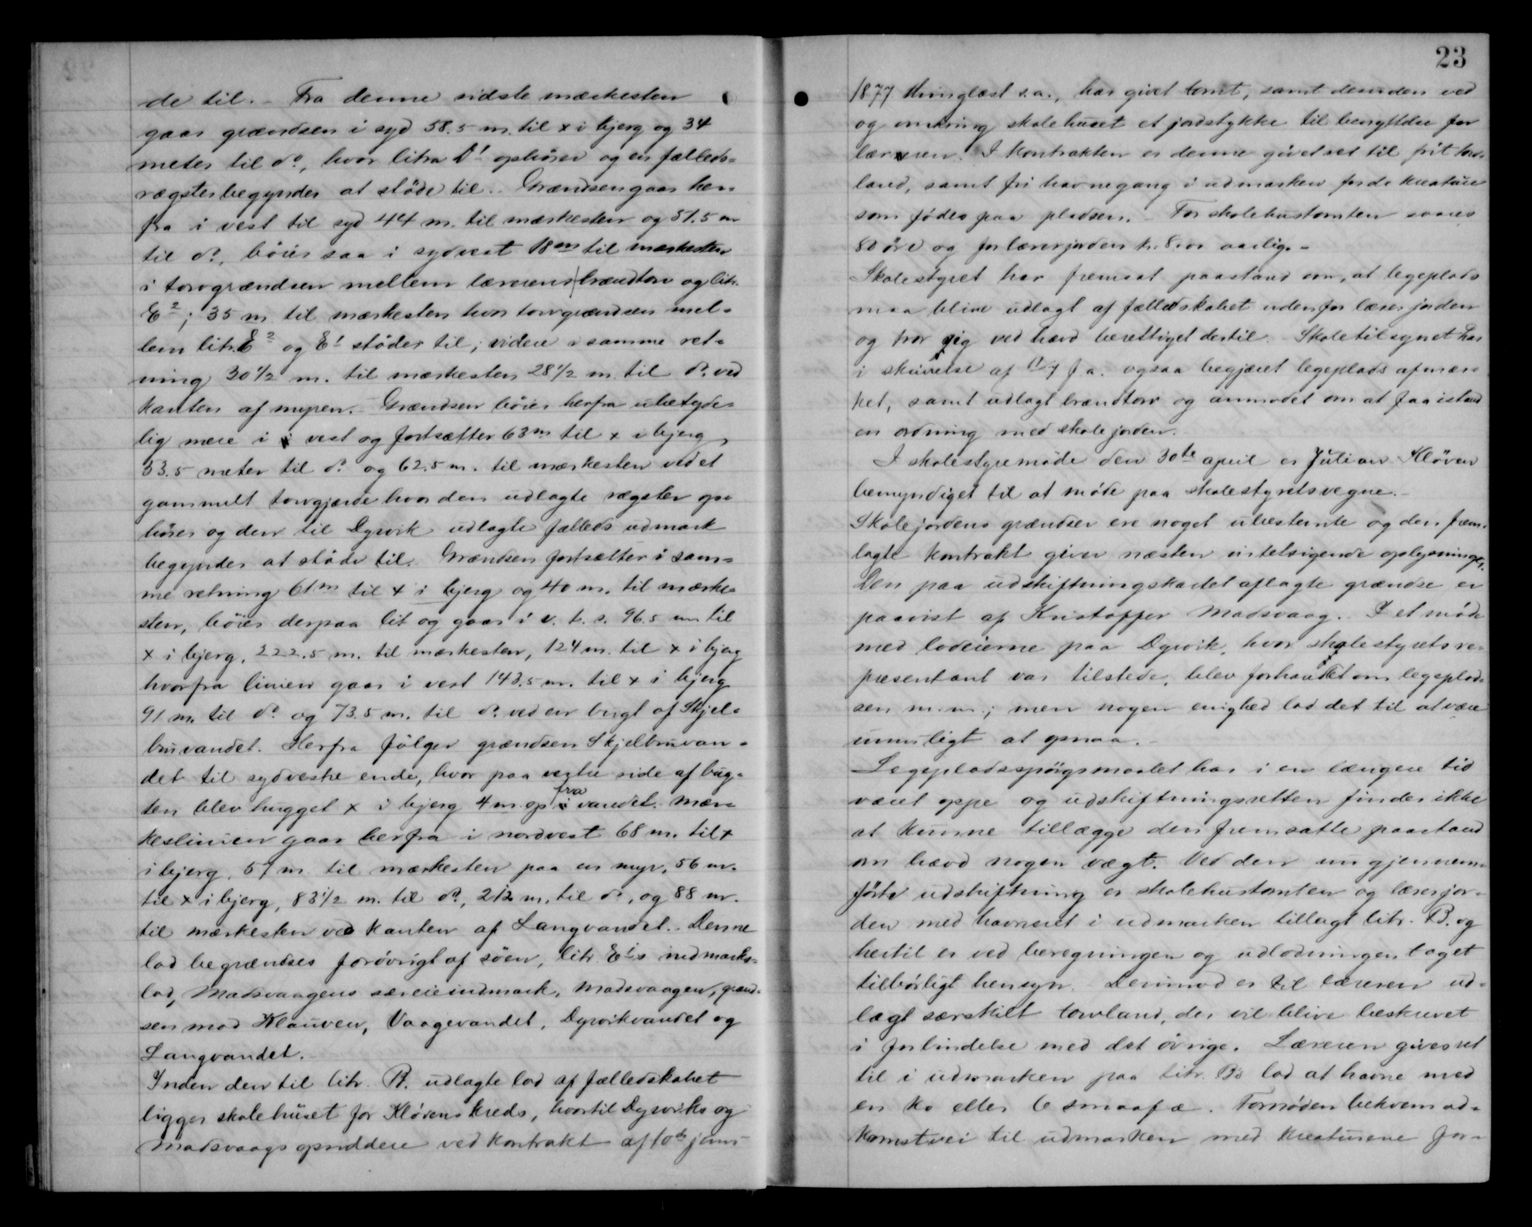 de til. – Fra denne sidste mærkesten
gaar grændsen i syd 58.5 m. til x i bjerg og 34
meter til do, hvor litra D1 ophører og en fælleds-
røgster begynder at støde til. Grændsen gaar her-
fra i vest til syd 44 m. til mærkesten og 51.5 m
til do, bøier saa i sydvest 18 m til mærkesten
i torvgrændsen mellem lærerens brændtorv og litr.
E2; 35 m til mærkesten hvor torvgrændsen mel-
lem litr. E2 og E1 støder til; videre i samme ret-
ning 30 1/2 m. til mærkesten 28 1/2 m. til do. ved
kanten af myren. Grændsen bøier herfra ubetyde-
lig mere i vest og fortsætter 63 m til x i bjerg,
33.5 meter til do og 62.5 m. til mærkesten ved et
gammelt torvgjærde hvor den udlagte røgster op-
hører og den til Dyrvik udlagte fælleds udmark
begynder at støde til. Grændsen fortsætter i sam-
me retning 61 m til x i bjerg og 40 m. til mærke-
sten, bøier derpaa lit og gaar i v. t. s. 96.5 m til
x i bjerg, 222.5 m. til mærkesten, 124 m. til x i bjerg
hvorfra linien gaar i vest 143.5 m. til x i bjerg
91 m. til do og 73.5 m. til do. ved en bugt af Skjel-
bruvandet. Herfra følger grændsen Skjelbruvan-
det til sydvestre ende, hvor paa vestre side af bug-
ten blev hugget x i bjerg 4 m op fra vandet. Mær-
keslinien gaar herfra i nordvest 68 m. til x
i bjerg, 57 m til mærkesten paa en myr, 56 m.
til x i bjerg, 83 1/2 m. til do, 212 m. til do, og 88 m.
til mærkesten ved kanten af Langvandet. Denne
lod begrændses forøvrigt af søen, litr. E1's indmarks-
lod, Madsvaagens særeieindmark, Madsvaagen, grænd-
sen mod Klauven, Vaagevandet, Dyrvikvandet og
Langvandet.
Inden den til litr. B. udlagte lod af fælledskabet
ligger skolehuset for Kløvens kreds, hvortil Dyrviks og
Madsvaags opsiddere ved kontrakt af 10de juni
23
1877 thinglæst s.a., har givet tomt, samt desuden ved
og omkring skolehuset et jordstykke til benyttelse for
læreren. I kontrakten er denne givet ret til frit torv-
land, samt fri havnegang i udmarken for de kreature
som fødes paa pladsen. – For skolehustomten svares
80 øre og for lærerjorden kr. 8.00 aarlig. –
Skolestyret har fremsat paastand om, at legeplads
maa blive udlagt af fælledskabet udenfor lærerjorden
og tror sig ved hævd berettiget dertil. Skoletilsynet har
i skrivelse af f.a. ogsaa begjæret legeplads afmær-
ket, samt udlagt brændtorv og anmodet om at faa istand
en ordning med skolejorden.
I skolestyremøde den 30te april er Julian Kløven
bemyndiget til at møde paa skolestyrets vegne. –
Skolejordens grændser ere noget ubestemte og den frem-
lagte kontrakt giver næsten intetsigende oplysninger.
Den paa udskiftningskartet aflagte grændse er
paavist af Kristoffer Madsvaag. I et møde
med lodeierne paa Dyrvik, hvor skolestyrets re-
præsentant var tilstede, blev forhandlet om legeplad-
sen m.m.; men nogen enighed lod det til at være
umuligt at opnaa. –
Legepladsspørgsmaalet har i en længere tid
været oppe og udskiftningsretten finder ikke
at kunne tillægge den fremsatte paastand
om hævd nogen vægt. Ved den nu gjennem-
førte udskiftning er skolehustomten og lærerjor-
den med havneret i udmarken tillagt litr. B. og
hertil er ved beregningen og udlodningen taget
tilbørligt hensyn. Derimod er til læreren ud-
lagt særskilt torvland, der vil blive beskrevet
i forbindelse med det øvrige. Læreren gives ret
til i udmarken paa litr. Bs lod at havne med
en ko eller 6 smaafæ. Fornøden bekvem ad-
komstvei til udmarken med kreaturene for-